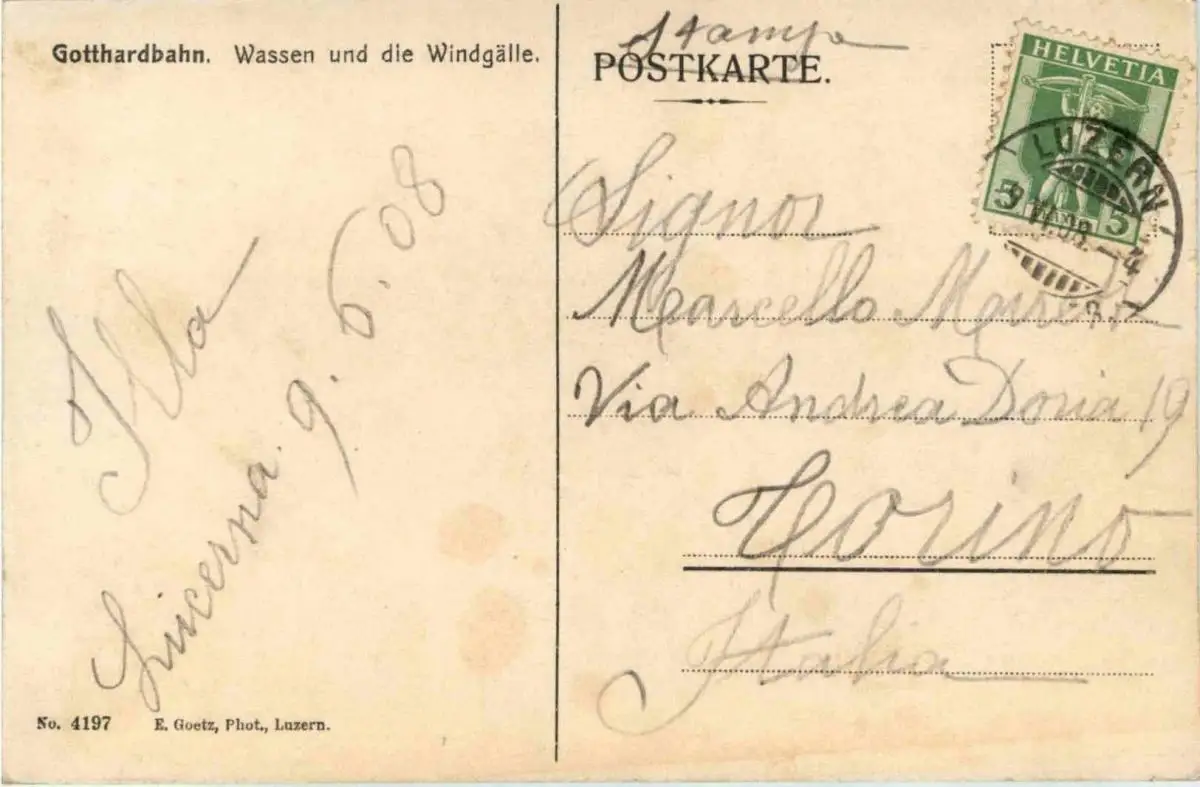 Gotthardbahn. Wassen und die Windgälle.
Illa
Lucerna. 9. 6. 08
No. 4197 E. Goetz, Phot., Luzern.
Stampa
POSTKARTE.
HELVETIA
5 5
LUZERN
9.VI.08.-4
Signor
Marcello
Via Andrea Doria 19
Torino
Italia